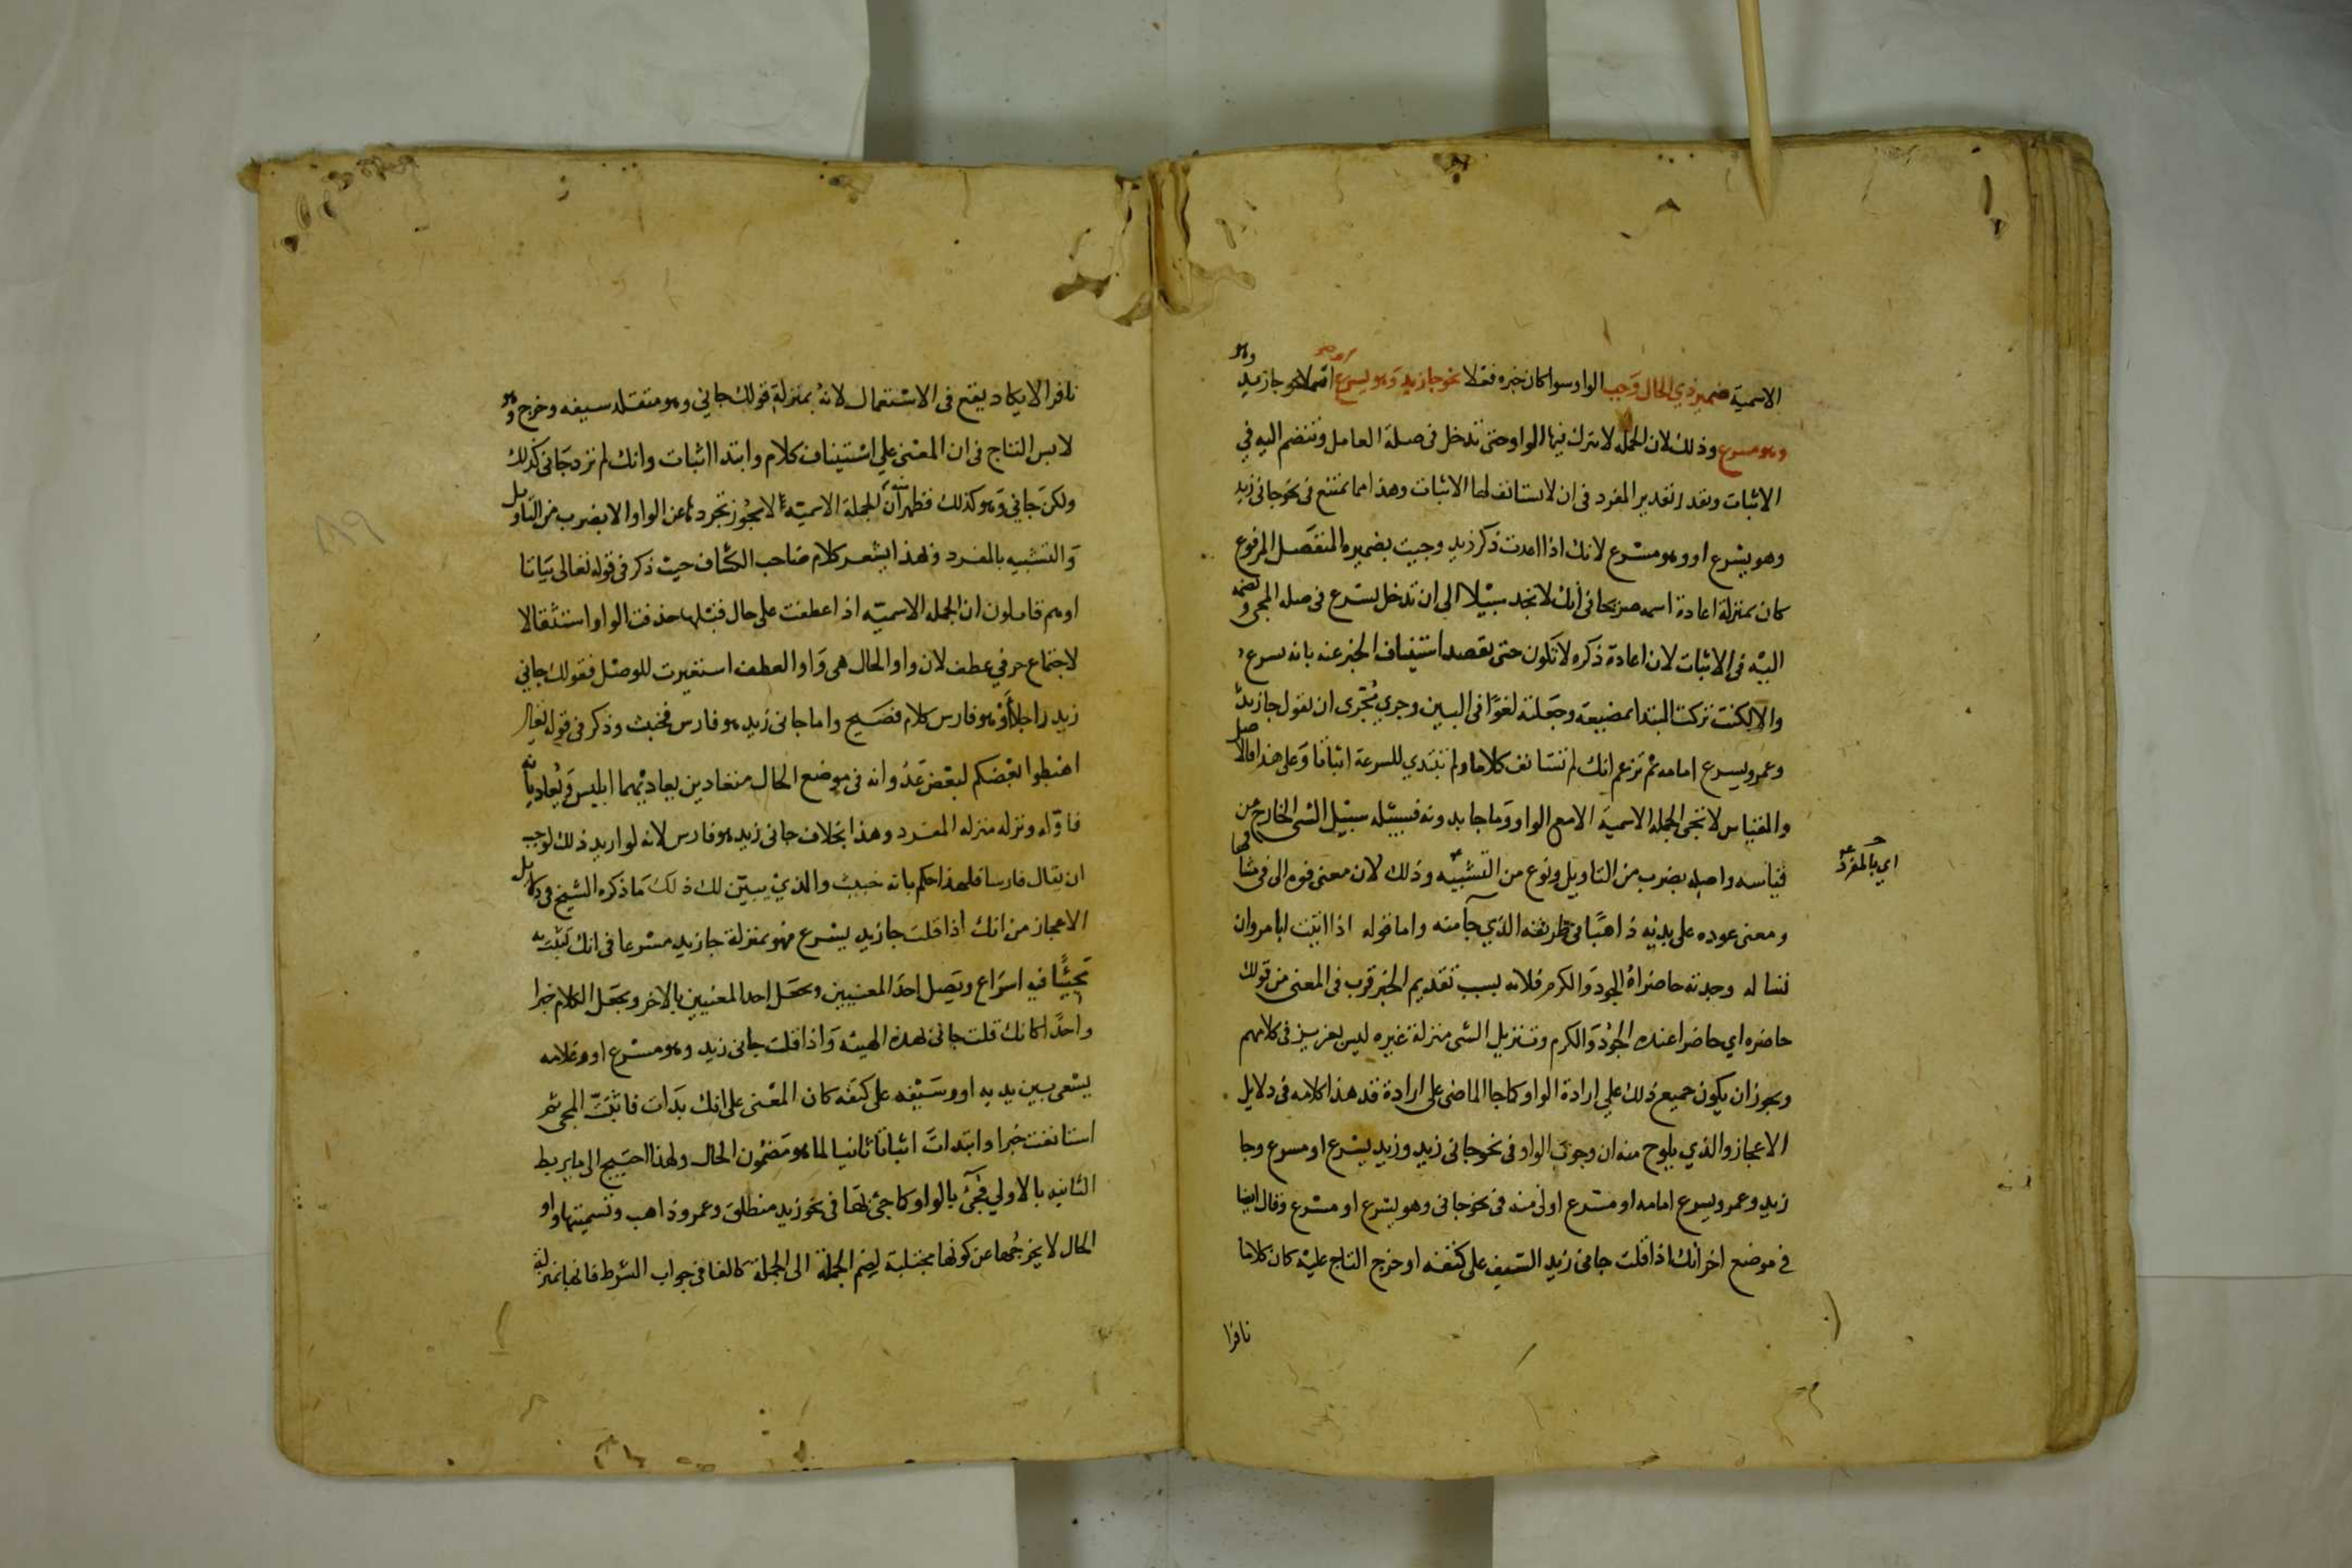 الاسمية ضمير ذي الحال وجب الواو سوا كان خبره فعلا نحو جا زيد وهو يسرع او اسما نحو جا زيد وهو
وهو مسرع وذلك لان الجملة لا يترك فيها الواو حتى تدخل في صلة العامل وتنضم اليه في
الاثبات وتقدر تقدير المفرد في ان لا يستانف لها الاثبات وهذا مما يمتنع في نحو جاني زيد
وهو يسرع او وهو مسرع لانك اذا اعدت ذكر زيد وجيت بضميره المنفصل المرفوع
كان بمنزلة اعادة اسمه صريحا في انك لا تجد سبيلا الى ان تدخل يسرع في صله المجي وتضمه
اليه في الاثبات لان اعادة ذكره لا تكون حتى يقصد استيناف الخبر عنه بانه يسرع
والا لكنت تركت المبتدا بمضيعة وجعلته لغوا في البين وجري مجرى ان تقول جا زيد
وعمرو يسرع امامه ثم تزعم انك لم تستانف كلاما ولم تبتدي للسرعة اثباتا وعلى هذا فالاصل
والقياس لا تجي الجمله الاسمية الا مع الواو وما جا بدونه فسبيله سبيل الشي الخارج عن
قياسه واصله بضرب من التاويل ونوع من التشبيه وذلك لان معنى فوه الى في مشافها
اي بالمفرد
ومعنى عوده على بديه ذاهبا في طريقه الذي جا منه واما قوله اذا اتيت ابا مروان
تساله وجدته حاضراه الجود والكرم فلانه بسبب تقديم الخبر قرب في المعنى من قولك
حاضره اي حاضرا عنده الجود والكرم وتنزيل الشي منزلة غيره ليس بعزيز في كلامهم
ويجوز ان يكون جميع ذلك على ارادة الواو كما جا الماضي على ارادة قد هذا كلامه في دلايل
الاعجاز والذي يلوح منه ان وجوب الواو في نحو جاني زيد وزيد يسرع او مسرع وجا
زيد وعمرو يسرع امامه او مسرع اولى منه في نحو جاني وهو يسرع او مسرع وقال ايضا
في موضع اخر انك اذا قلت جاني زيد السيف على كتفه او خرج التاج عليه كان كلاما
نافرا
نافرا لا يكاد يقع في الاستعمال لانه بمنزلة قولك جاني وهو متقلد سيفه وخرج وهو
لابس التاج في ان المعنى على استيناف كلام وابتدا اثبات وانك لم ترد جاني كذلك
ولكن جاني وهو كذلك فظهر منه ان الجملة الاسمية لا يجوز تجردها عن الواو الا بضرب من التاويل
والتشبيه بالمفرد وبهذا يشعر كلام صاحب الكشاف حيث ذكر في قوله تعالى بياتا
او هم قايلون ان الجمله الاسميه اذا عطفت على حال قبلها حذفت الواو استثقالا
لاجتماع حرفي عطف لان واو الحال هي واو العطف استعيرت للوصل فقولك جاني
زيد راجلا او هو فارس كلام فصيح واما جاني زيد هو فارس فخبيث وذكر في قوله تعالى
اهبطوا بعضكم لبعض عدو انه في موضع الحال متعادين يعاديهما ابليس ويعاديانه
فاوله ونزله منزله المفرد وهذا بخلاف جاني زيد هو فارس لانه لو اريد ذلك لوجب
ان يقال فارسا فلهذا حكم بانه خبيث والذي يبين لك ذلك ما ذكره الشيخ في دلايل
الاعجاز من انك اذا قلت جا زيد يسرع فهو بمنزلة جا زيد مسرعا في انك تثبت
مجيئا فيه اسراع وتصل احد المعنيين وتجعل احد المعنيين بالاخر وتجعل الكلام خبرا
واحدا كانك قلت جاني بهذه الهيئه واذا قلت جاني زيد وهو مسرع او وغلامه
يسعى بين يديه او وسيفه على كتفه كان المعنى على انك بدات فاثبت المجي ثم
استانفت خبرا وابتدات اثباتا ثانيا لما هو مضمون الحال ولهذا احتيج الى ما يربط
الثانيه بالاولي فجيء بالواو كما جيء بها في نحو زيد منطلق وعمرو ذاهب وتسميتها واو
الحال لا يخرجها عن كونها مجتلبة لضم الجملة الى الجملة كالفا في جواب الشرط فانها بمنزلة